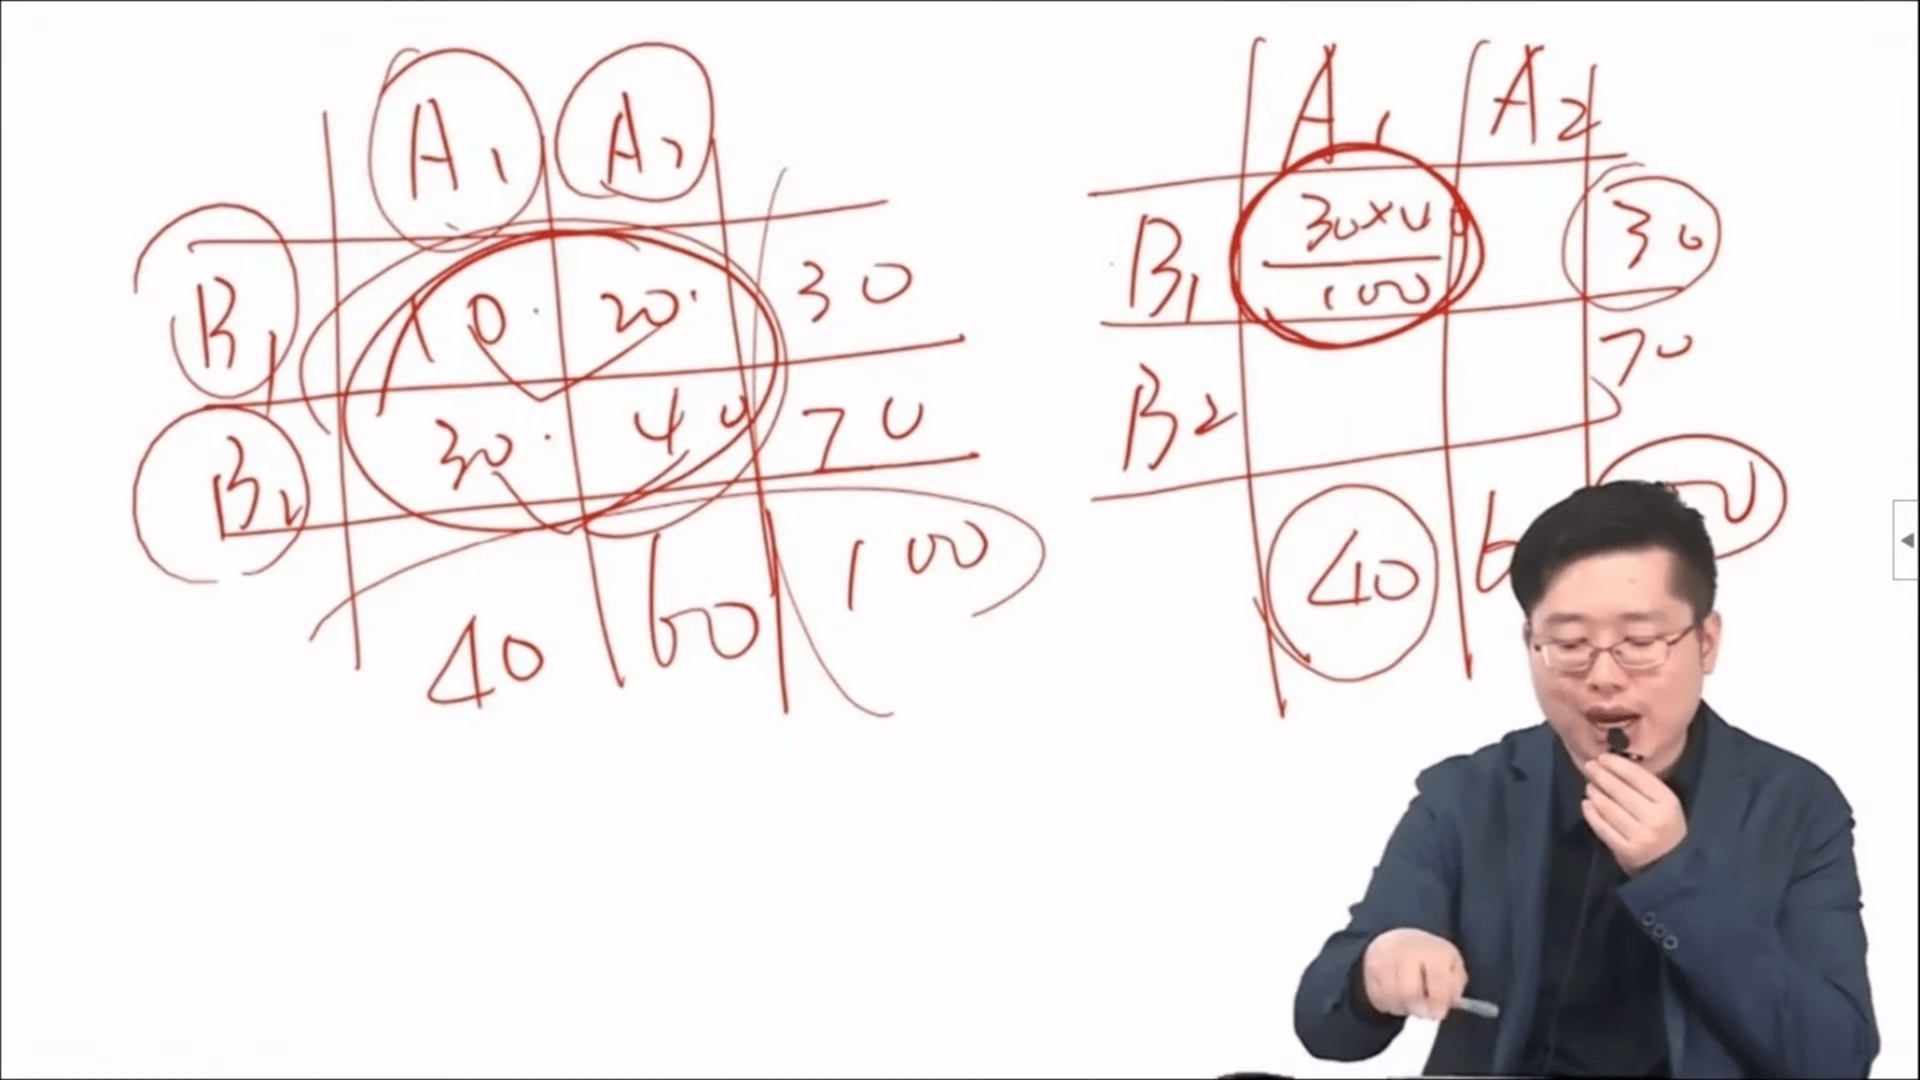 A1 A2
B1 10 20 30
B2 30 40 70
40 60 100
A1 A2
B1 30×40 30
100
B2 70
40 6